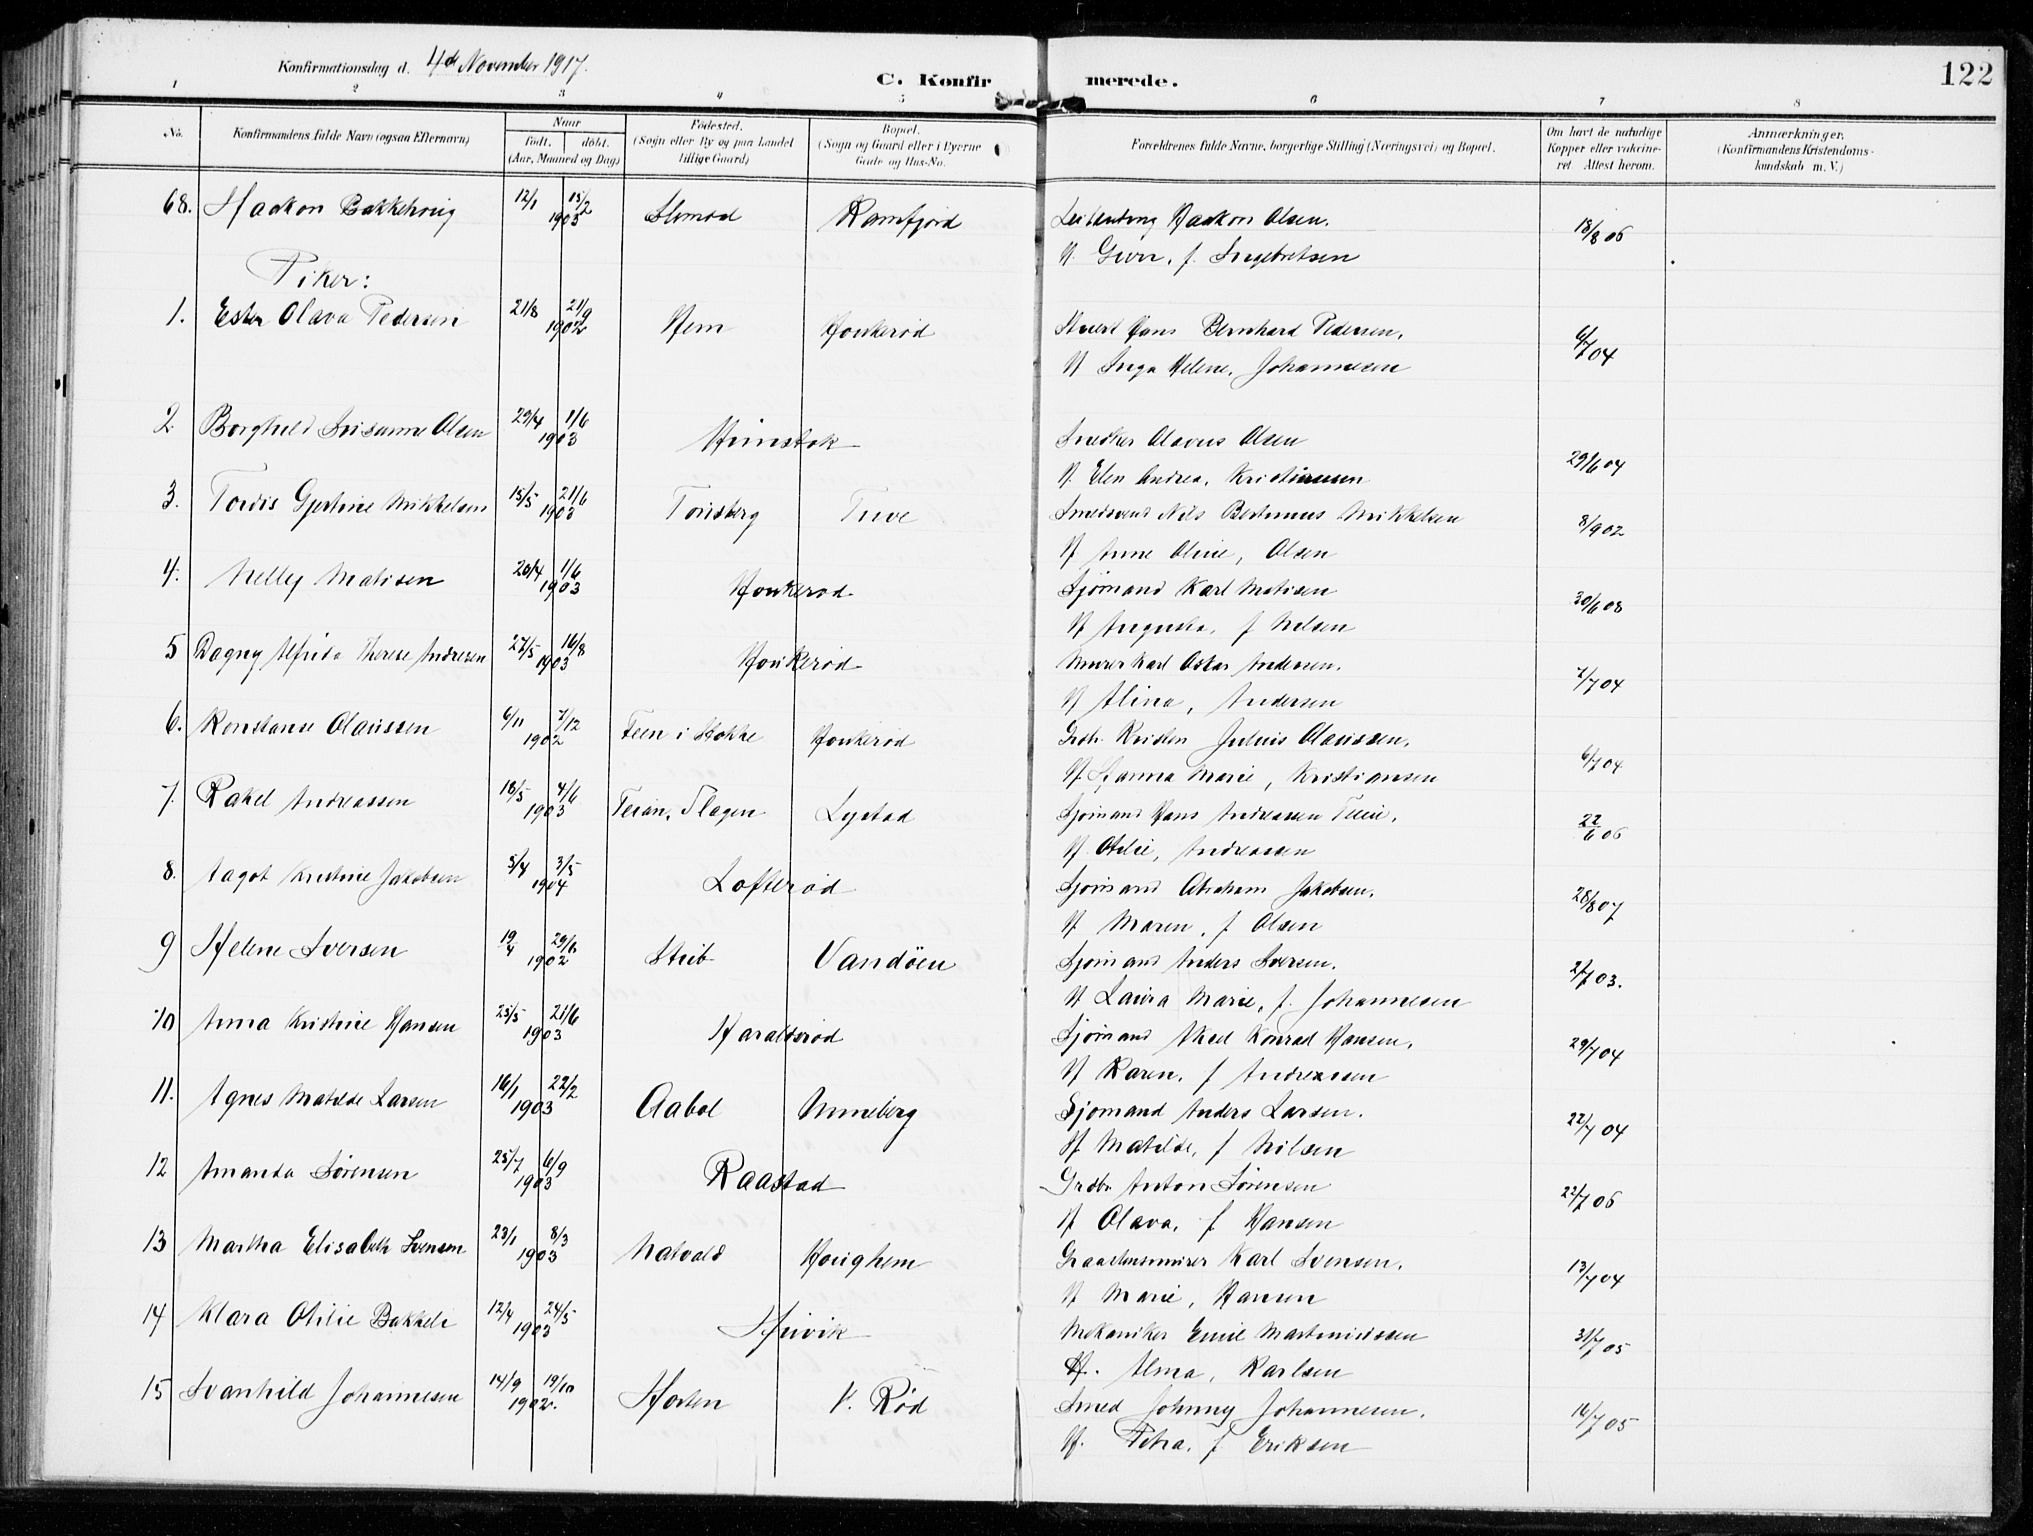 122
Konfirmationsdag d. 4de November 1917.
C. Konfirmerede.
1 2 3 4 5 6 7 8
No. Konfirmandens fulde Navn (ogsaa Efternavn) Naar født. døbt. (Aar, Maaned og Dag) Fødested. (Sogn eller By og paa Landet tillige Gaard) Bopæl. (Sogn og Gaard eller i Byerne Gade og Hus-No. Forældrenes fulde Navne, borgerlige Stilling (Næringsvei) og Bopæl. Om havt de naturlige Kopper eller vakcineret Attest herom. Anmærkninger, (Konfirmandens Kristendomskundskab m. V.)
68. Haakon Bakkehaug 12/1 15/2 1903 Ramfjord Haakon Olsen. 18/8 06
H. f. Ingebretsen
Piker:
1. Ester Olava Pedersen 21/8 21/9 1902 Hem Haukerød Hans Bernhard Pedersen. 6/7 04
H Inga Helene, Johannesen
2. Borghild Susanne Olsen 29/4 1/6 1903 Himstok Snedker Olavus Olsen 29/6 04
H. Elen Andrea, Kristiansen
3. Tordis Gjertine Mikkelsen 15/5 21/6 1903 Tønsberg Tuve Smedsvend Nils Bertinius Mikkelsen 8/9 02
H Anne Oline, Olsen
4. Nelly Matisen 20/4 1/6 1903 Haukerød Sjømand Karl Matisen 30/6 08
H Augusta, f Nilsen
5 Dagny Alfrida Therese Andresen 27/5 16/8 1903 Haukerød Murer Karl Oskar Andersen. 7/7 04
H Alina, Andersen
6. Konstanse Olaussen 6/11 7/12 1902 Feen i Stokke Haukerød Kristen Julius Olaussen. 6/7 04
H. Hanna Marie, Kristiansen
7. Rakel Andreassen 18/5 4/6 1903 Teian, Slagen Lystad Sjømand Hans Andreassen 22/6 06
H. Otilie, Andreassen
8. Aagot Kristine Jakobsen 5/4 3/5 1904 Lofterød Sjømand Abraham Jakobsen. 28/8 07
H Maren, f Olsen
9 Helene Iversen 19/4 29/6 1902 Stub Vandøen Sjømand Anders Iversen. 2/7 03.
H Laura Marie, f. Johannesen
10 Anna Kristine Hansen 25/5 21/6 1903 Haraldsrød Sjømand Aksel Konrad Hansen. 29/7 04
H Karen, f Andreassen
11. Agnes Matilde Larsen 16/1 22/2 1903 Aabol Unneberg Sjømand Anders Larsen. 22/7 04
H Matilde, f Nilsen
12 Amanda Sørensen 25/7 6/9 1903 Raastad Grdbr Anton Sørensen 22/7 06
H Olava, f Hansen
13 Martha Elisabeth Svensen 23/1 8/3 1903 Natvald Haughem Graastensmurer Karl Svensen. 13/7 04
H Marie, Hansen
14 Klara Otilie Bakkeli 12/4 24/5 1903 Huvik Mekaniker Emil Martiniussen 31/7 05
H. Alma, Karlsen
15 Svanhild Johannesen 14/9 19/10 1902. Horten V. Rød Smed Johnny Johannesen. 16/7 05
H. Petra, f Eriksen